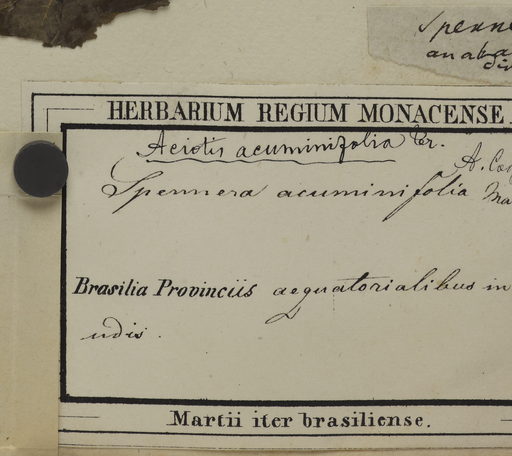 Spenne
anaba
HERBARIUM REGIUM MONACENSE.
Aciotis acuminifolia Tr.
Spennera acuminifolia
Brasilia Provinciis aequatorialibus in
udis.
Martii iter brasiliense.